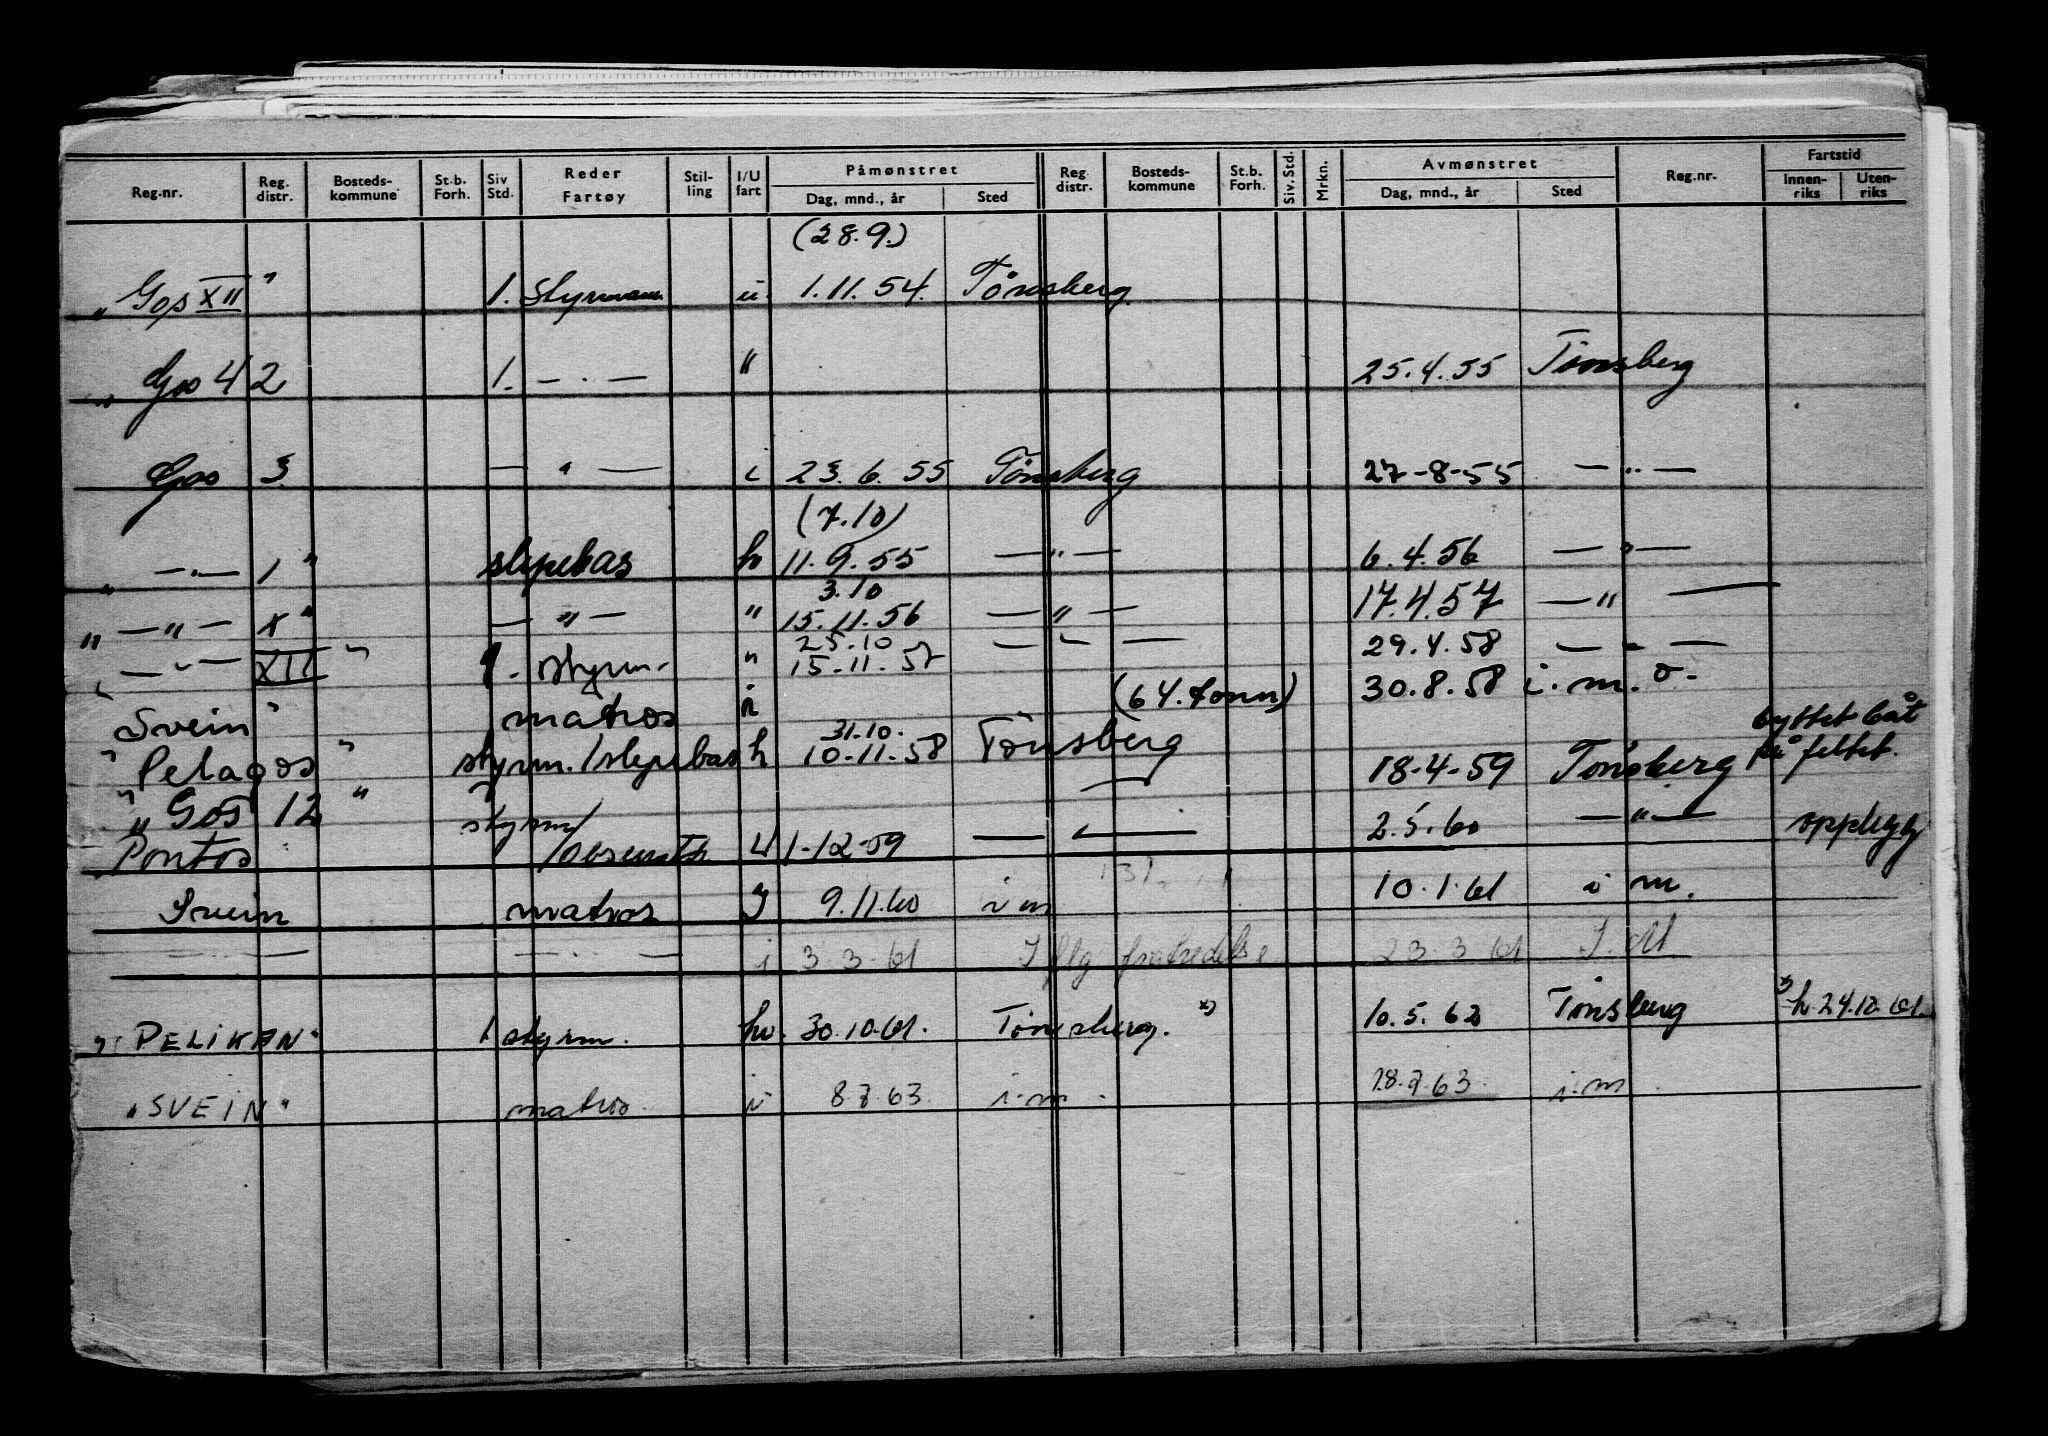 Reg.nr. Reg. distr. Bosteds- kommune St.b. Forh. Siv Std. Reder Fartøy Stil- ling I/U fart Påmønstret Dag, mnd., år Sted Reg distr. Bosteds- kommune St.b. Forh. Siv. Std. Mrkn. Avmønstret Dag, mnd., år Sted Reg.nr. Fartstid Innen- riks Uten- riks
(28.9.)
„ Gos XII " 1. Styrmann u. 1.11.54. Tønsberg
„ Gos 42 1. — . — " 25.4.55 Tønsberg
Gos 3 — " — i 23.6.55 Tønsberg 27-8-55 — " —
(7.10)
„ — . — 1 " slypebas h 11.9.55 — " — 6.4.56 — " —
3.10
„ — " — X " — " — " 15.11.56 — " — 17.4.57 — " —
25.10
— " — XII " 1. styrm. " 15-11-57 — " — 29.4.58 — " —
" Svein " matros i (64. tonn) 30.8.58 i. m. o.
31.10.
" Pelagos " styrm./slypebas h 10-11-58 Tønsberg 18-4-59 Tønsberg byttet båt på feltet.
" „ Gos 12 "
Pontos styrm/ U 1-12-59 — " — 2.5.60 — " — opplegg
Svein matros 9.11.60 i m 10.1.61 i m.
— . . — — . . — i 3.3.61 Iflg fratredelse 23.3.61 I. M.
„ PELIKAN " 1 styrm. hv. 30.10.61. Tønsberg. *) 10.5.62 Tønsberg *) h. 24.10.61.
„ SVEIN " matros i 8 7 63. i. m. 28.7.63. i. m.